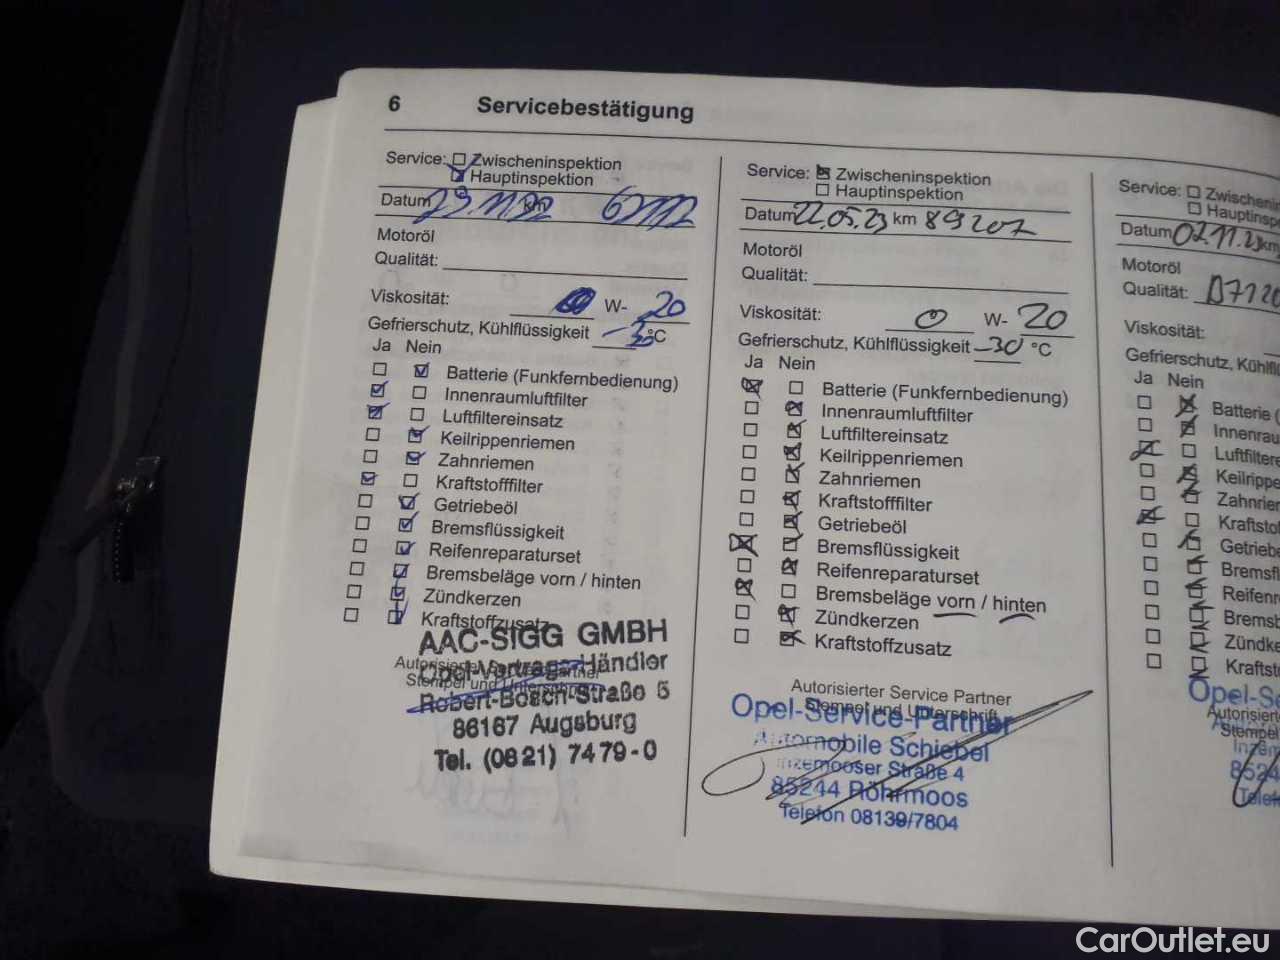 6 Servicebestätigung
Service: Zwischeninspektion
Hauptinspektion
Datum km
Motoröl
Qualität:
Viskosität: W- 20
Gefrierschutz, Kühlflüssigkeit -30 °C
Ja Nein
Batterie (Funkfernbedienung)
Innenraumluftfilter
Luftfiltereinsatz
Keilrippenriemen
Zahnriemen
Kraftstofffilter
Getriebeöl
Bremsflüssigkeit
Reifenreparaturset
Bremsbeläge vorn / hinten
Zündkerzen
Kraftstoffzusatz
AAC-SIGG GMBH
Autorisierter Service Partner
Opel-Vertrags-Händler
Stempel und Unterschrift
Robert-Bosch-Straße 5
86167 Augsburg
Tel. (08 21) 74 79-0
Service: Zwischeninspektion
Hauptinspektion
Datum 22.05.23 km 89207
Motoröl
Qualität:
Viskosität: 0 W- 20
Gefrierschutz, Kühlflüssigkeit -30 °C
Ja Nein
Batterie (Funkfernbedienung)
Innenraumluftfilter
Luftfiltereinsatz
Keilrippenriemen
Zahnriemen
Kraftstofffilter
Getriebeöl
Bremsflüssigkeit
Reifenreparaturset
Bremsbeläge vorn / hinten
Zündkerzen
Kraftstoffzusatz
Autorisierter Service Partner
Stempel und Unterschrift
Opel-Service-Partner
Automobile Schiebel
Inzemooser Straße 4
85244 Röhrmoos
Telefon 08139/7804
Service: Zwischenin
Hauptinsp
Datum 02.11.23 km
Motoröl
Qualität:
Viskosität:
Gefrierschutz, Kühlfl
Ja Nein
Batterie (
Innenrau
Luftfiltere
Keilrippe
Zahnrier
Kraftsto
Getriebe
Bremsfl
Reifenr
Bremsb
Zündke
Kraftst
Opel-S
Autorisiert
Stempel
Inzem
8524
Telef
CarOutlet.eu